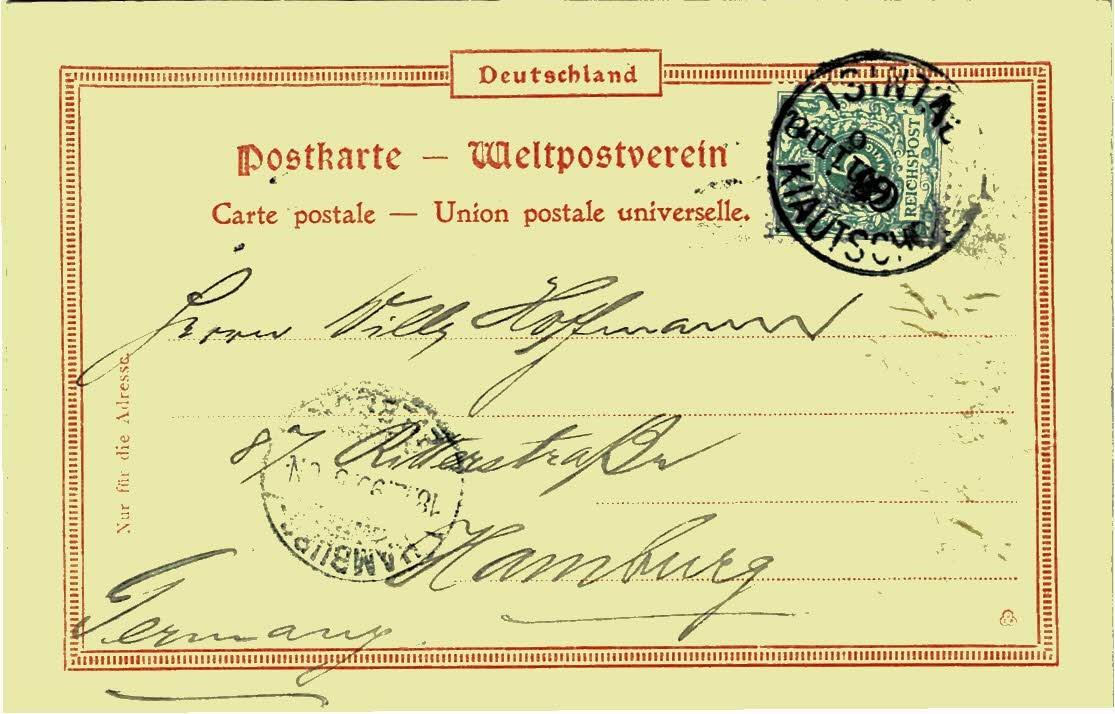 Deutschland
Postkarte — Weltpostverein
Carte postale — Union postale universelle.
TSINTAU
China
REICHSPOST
KIAUTSCHOU
Herrn Willy Hoffmann
87 Ritterstraße
Hamburg
Germany.
Nur für die Adresse.
HAMBURG